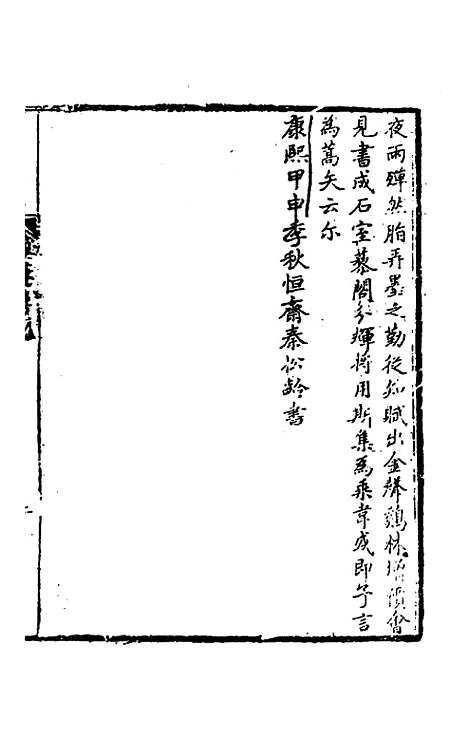 夜雨殫然脂弄墨之勤從知賦出金聲鷄林增價會
見書成石室藜閣分輝將用斯集爲乘韋或即予言
為蒿矢云尔
康熙甲申季秋恒齋秦松齡書